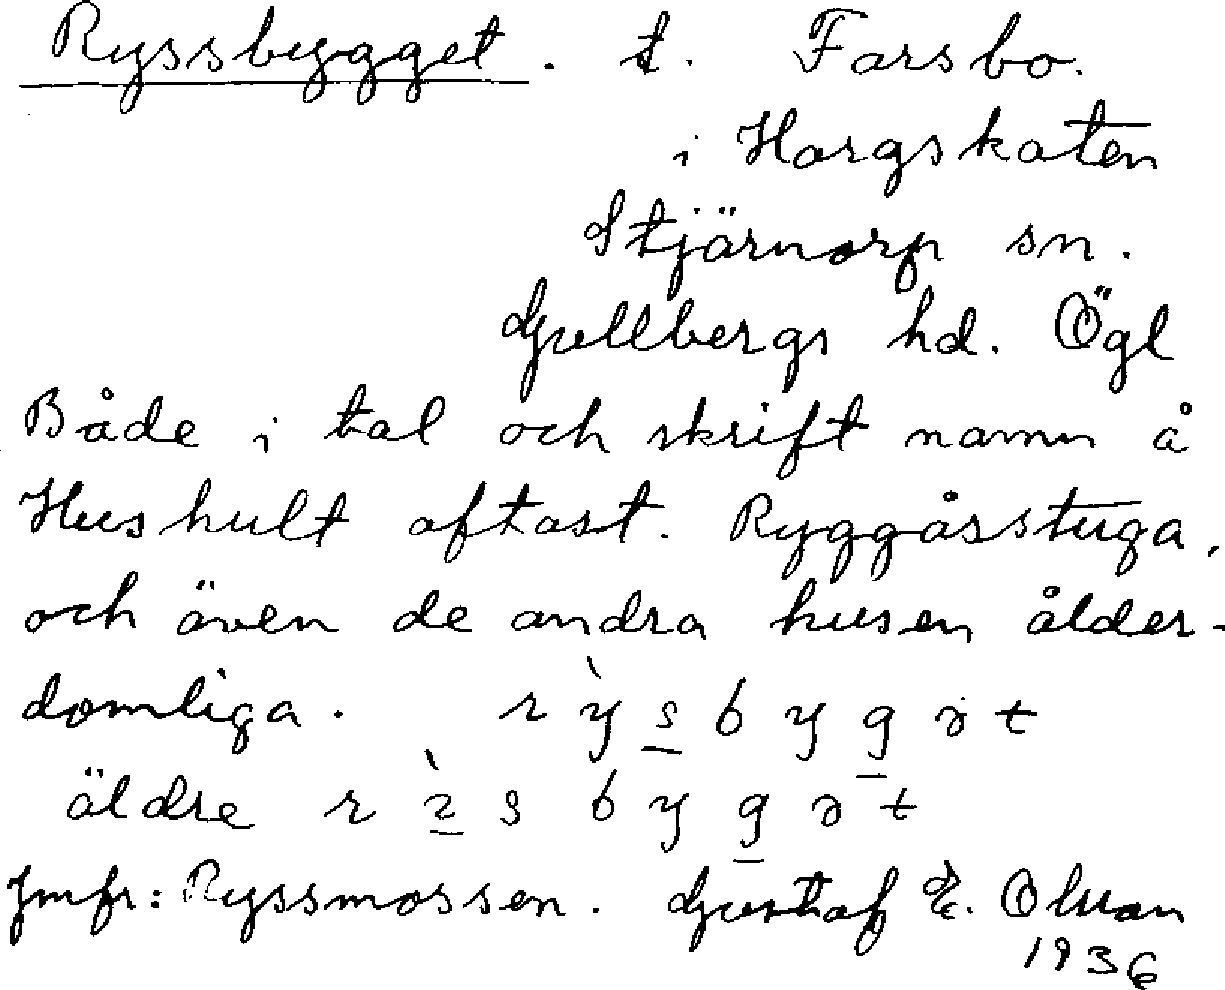 Ryssbygget. t. Farsbo.
i Horgskaten
Stjärnorp sn.
Gullbergs hd. Ögl
Både i tal och skrift namn å
Hushult oftast. Ryggåsstuga,
och även de andra husen ålder-
domliga.
äldre
Jmfr: Ryssmossen. Gustaf E. Olsson
1936